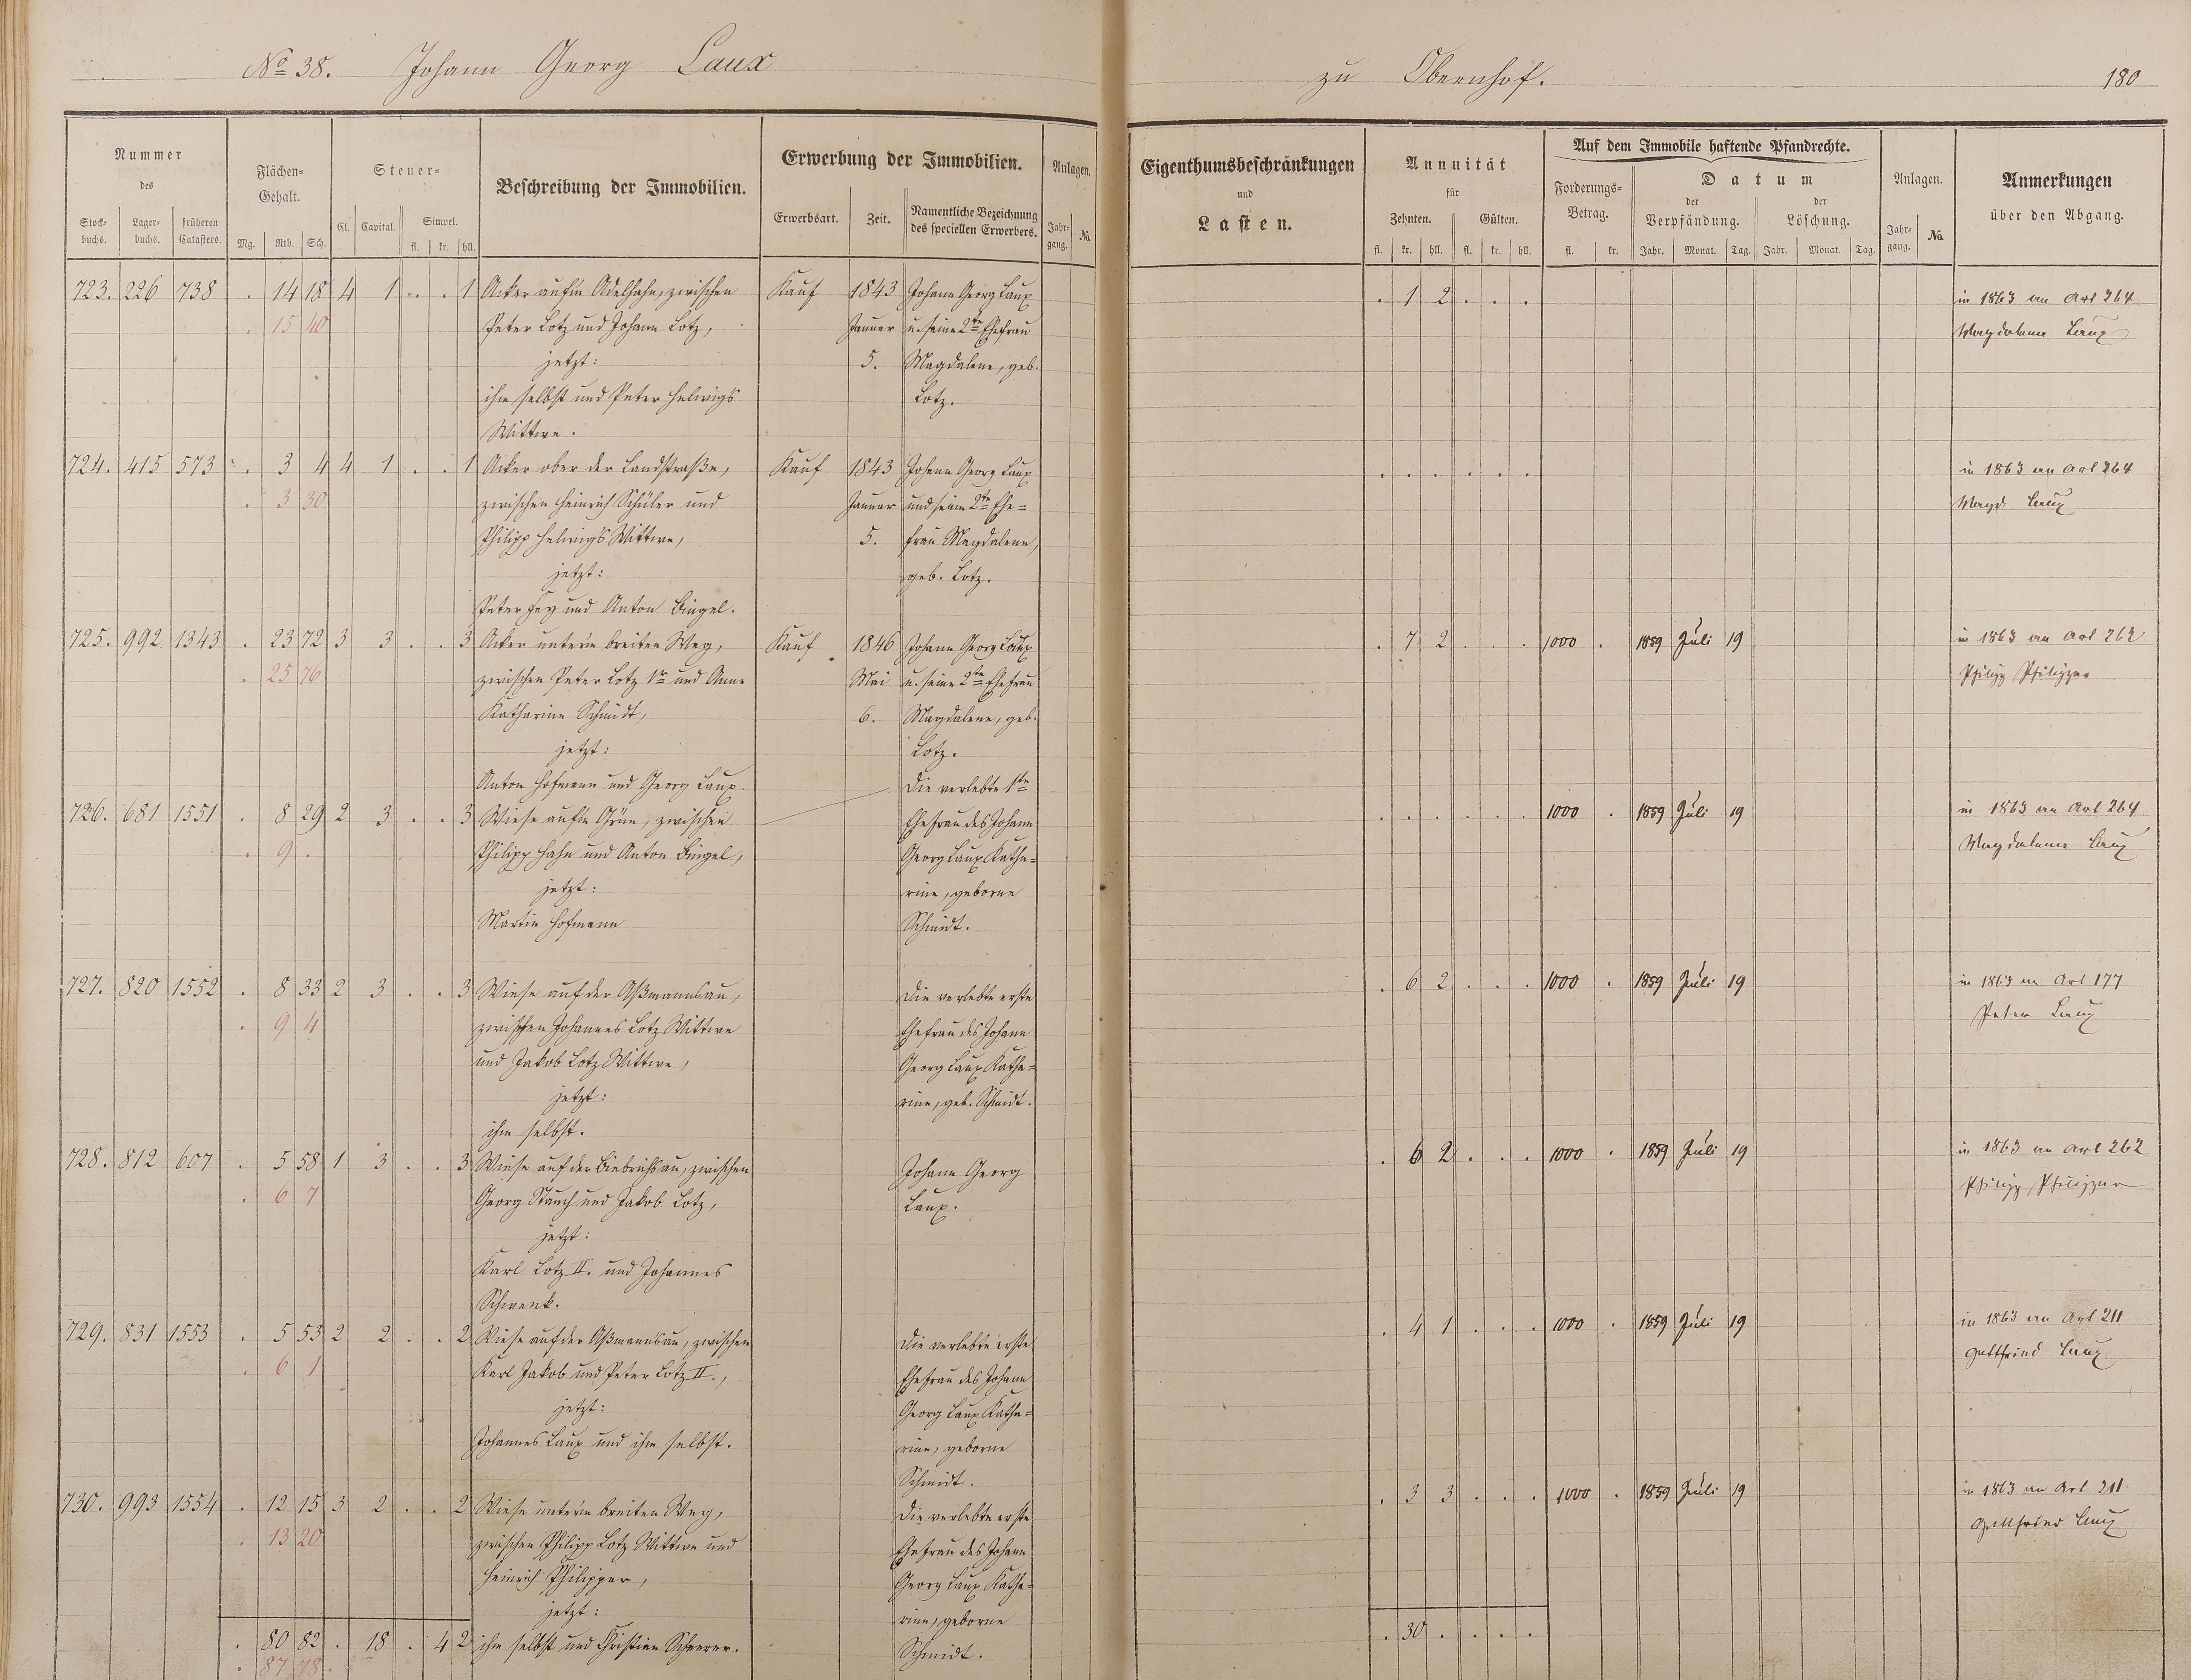 No 38. Johann Georg Laux zu Obernhof. 180
Nummer
des
Stock-
buchs.
Lager-
buchs.
früheren
Catasters.
Flächen-
Gehalt.
Mg. Rth. Sch.
Steuer-
Cl. Capital. Simpel.
fl. kr. hll.
Beschreibung der Immobilien.
Erwerbung der Immobilien.
Erwerbsart. Zeit. Namentliche Bezeichnung
des speciellen Erwerbers.
Anlagen.
Jahr-
gang. No
Eigenthumsbeschränkungen
und
Lasten.
Annuität
für
Zehnten. Gülten.
fl. kr. hll. fl. kr. hll.
Auf dem Immobile haftende Pfandrechte.
Forderungs-
Betrag.
fl. kr.
Datum
der
Verpfändung.
der
Löschung.
Jahr. Monat. Tag. Jahr. Monat. Tag.
Anlagen.
Jahr-
gang. No
Anmerkungen
über den Abgang.
723. 226 738 . 14 18 4 1 . . 1
. 15 40
Acker auf'm Adelhahn, zwischen
Peter Lotz und Johann Lotz,
jetzt:
ihm selbst und Peter Helwigs
Wittwe.
Kauf 1843
Januar
5.
Johann Georg Laux
u. seine 2te Ehefrau
Magdalene, geb.
Lotz.
. 1 2 . . .
in 1863 an Art 264
Magdalena Laux
724. 415 573 . 3 4 4 1 . . 1
. 3 30
Acker ober der Landstraße,
zwischen Heinrich Schüler und
Philipp Helwigs Wittwe,
jetzt:
Peter Fey und Anton Bingel.
Kauf 1843
Januar
5.
Johann Georg Laux
und seine 2te Ehe=
frau Magdalene,
geb. Lotz.
. . . . . .
in 1863 an Art 264
Magd Laux
725. 992 1343 . 23 72 3 3 . . 3
. 25 76
Acker unterm breiten Weg,
zwischen Peter Lotz 1r und Anne
Katharine Schmidt,
jetzt:
Anton Hofmann und Georg Laux.
Kauf 1846
Mai
6.
Johann Georg Laux
u. seine 2te Ehefrau
Magdalene, geb.
Lotz.
. 7 2 . . . 1000 . 1859 Juli 19
in 1863 an Art 262
Philipp Philippar
726. 681 1551 . 8 29 2 3 . . 3
. 9 .
Wiese auf'm Grün, zwischen
Philipp Hahn und Anton Bingel,
jetzt:
Martin Hofmann
Die verlebte 1te
Ehefrau des Johann
Georg Laux Katha=
rine, geborne
Schmidt.
. . . . . . 1000 . 1859 Juli 19
in 1863 an Art 264
Magdalena Laux
727. 820 1552 . 8 33 2 3 . . 3
. 9 4
Wiese auf der Aßmannsau,
zwischen Johannes Lotz Wittwe
und Jakob Lotz Wittwe,
jetzt:
ihm selbst.
Die verlebte erste
Ehefrau des Johann
Georg Laux Katha=
rine, geb. Schmidt.
. 6 2 . . . 1000 . 1859 Juli 19
in 1863 an Art 177
Peter Laux
728. 812 607 . 5 58 1 3 . . 3
. 6 7
Wiese auf der Biebrichsau, zwischen
Georg Stauch und Jakob Lotz,
jetzt:
Karl Lotz II. und Johannes
Schwenk.
Johann Georg
Laux.
. 6 2 . . . 1000 . 1859 Juli 19
in 1863 an Art 262
Philipp Philippar
729. 831 1553 . 5 53 2 2 . . 2
. 6 1
Wiese auf der Aßmannsau, zwischen
Karl Jakob und Peter Lotz II.,
jetzt:
Johannes Laux und ihm selbst.
Die verlebte erste
Ehefrau des Johann
Georg Laux Katha=
rine, geborne
Schmidt.
. 4 1 . . . 1000 . 1859 Juli 19
in 1863 an Art 211
Gottfried Laux
730. 993 1554 . 12 15 3 2 . . 2
. 13 20
Wiese unterm breiten Weg,
zwischen Philipp Lotz Wittwe und
Heinrich Philippar,
jetzt:
ihm selbst und Christian Scheerer.
Die verlebte erste
Ehefrau des Johann
Georg Laux Katha=
rine, geborne
Schmidt.
. 3 3 . . . 1000 . 1859 Juli 19
in 1863 an Art 211
Gottfried Laux
. 80 82 . 18 . 4 2
. 87 78 .
. 30 . . . .